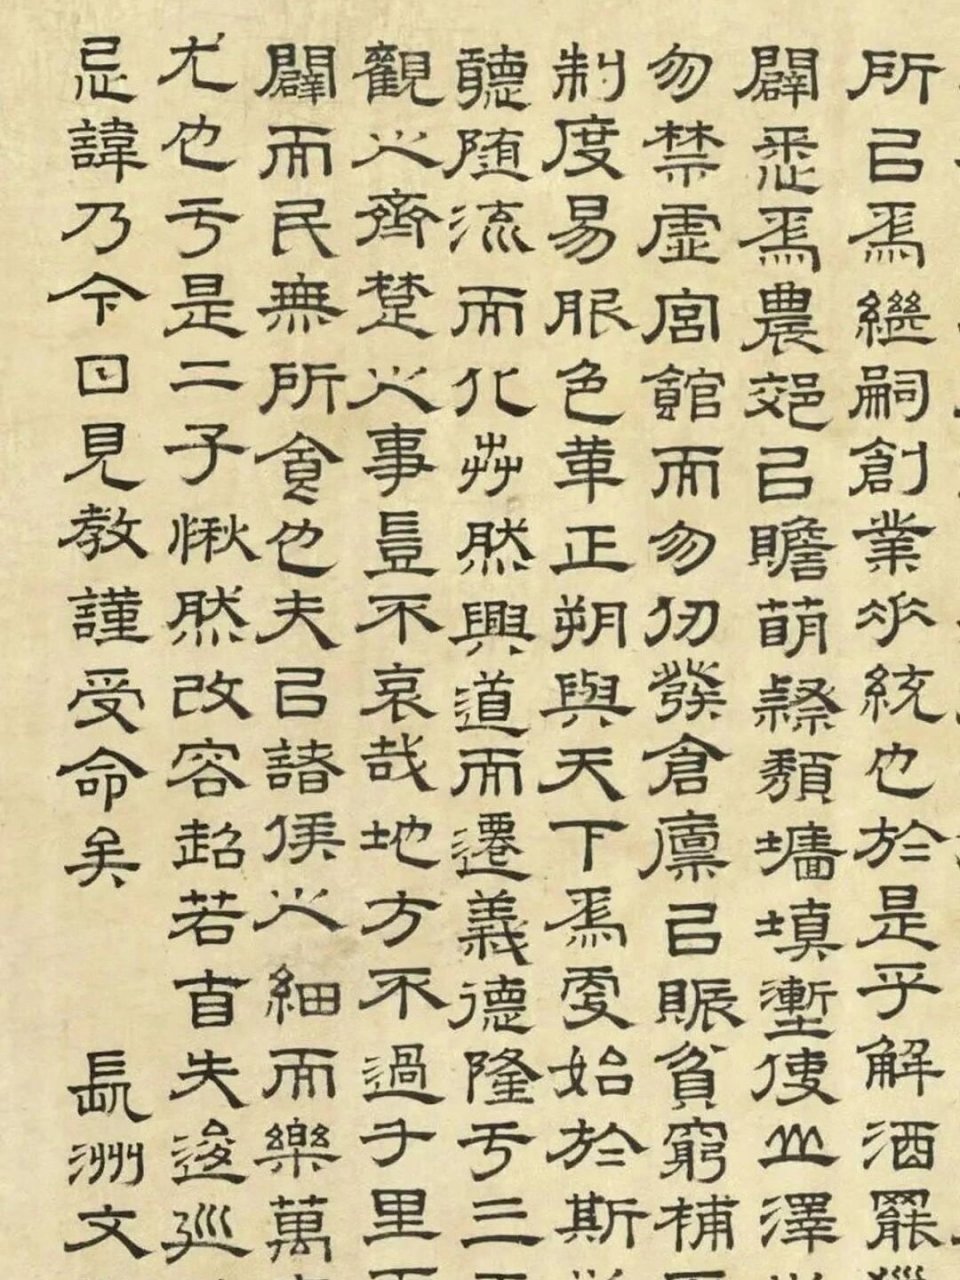 所㠯爲繼嗣創業垂統也於是乎解酒罷獵
闢悉爲農郊㠯贍萌隸頽墻填壍使山澤
勿禁虛宮館而勿仞發倉廩㠯賑貧窮補
制度易服色革正朔與天下爲更始於斯
聽随流而化芔然興道而遷義德隆亏三
觀之齊楚之事豈不哀哉地方不過千里
闢而民無所食也夫㠯諸侯之細而樂萬
尤也亏是二子愀然改容超若自失逡巡
忌諱乃今日見教謹受命矣 長洲文